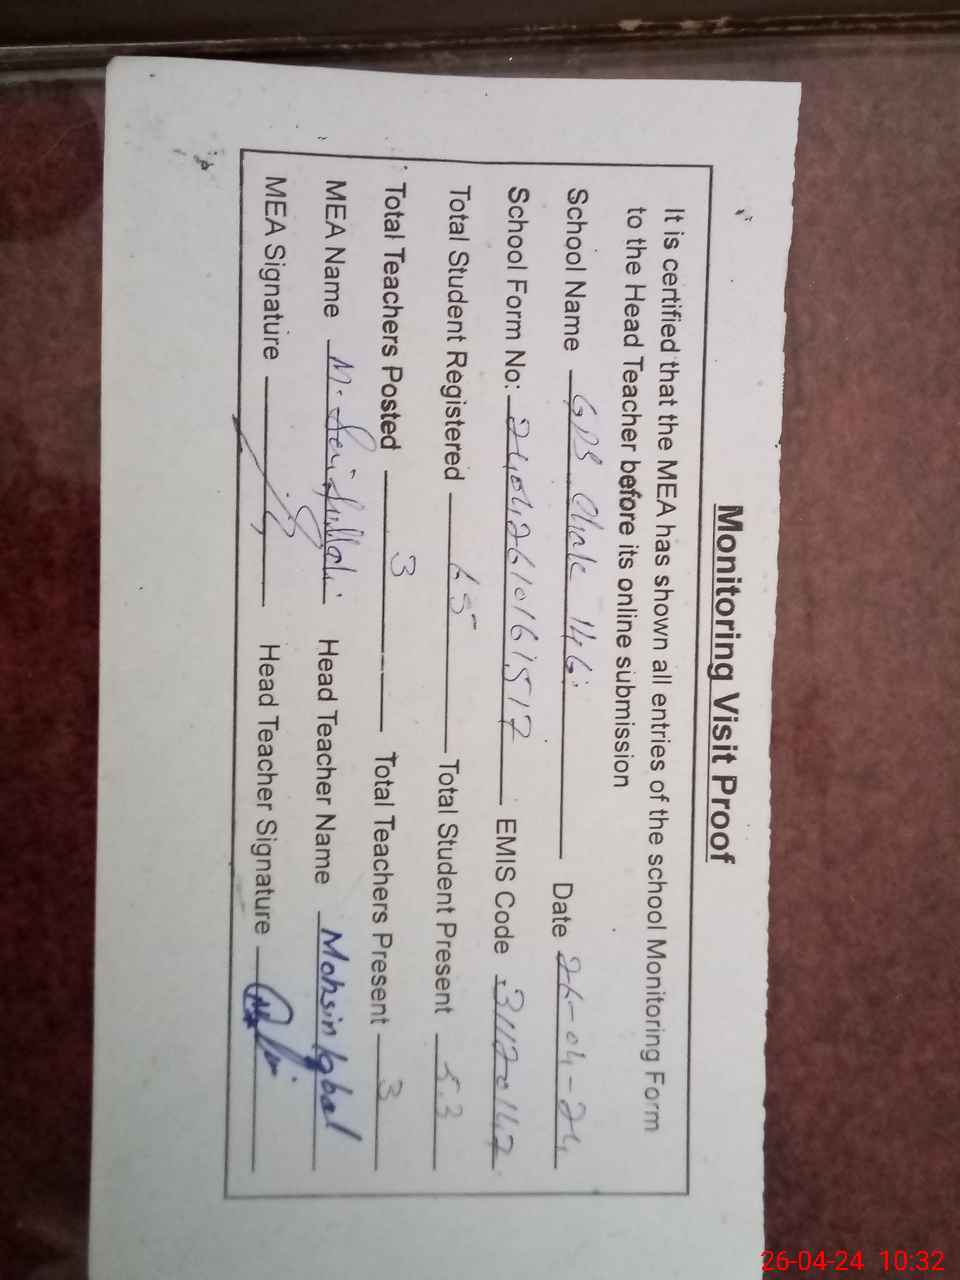 Monitoring Visit Proof
It is certified that the MEA has shown all entries of the school Monitoring Form
to the Head Teacher before its online submission
School Name GPS Chak 146 Date 26-04-24
School Form No: EMIS Code 31120147
Total Student Registered 65 Total Student Present 53
Total Teachers Posted 3 Total Teachers Present 3
MEA Name M. Head Teacher Name Mohsin Iqbal
MEA Signature Head Teacher Signature
26-04-24 10:32